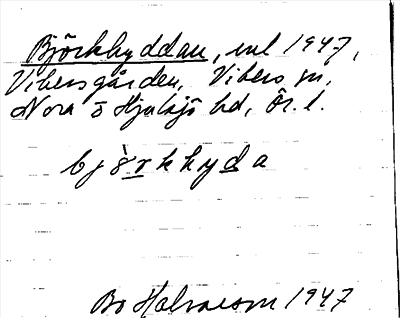 Björkhyddan, enl 1947,
Vibersgården, Vikers sn,
Nora o Hjulsjö hd, Ör. l.
bjö̀rkhyda
Bo Halvarson 1947